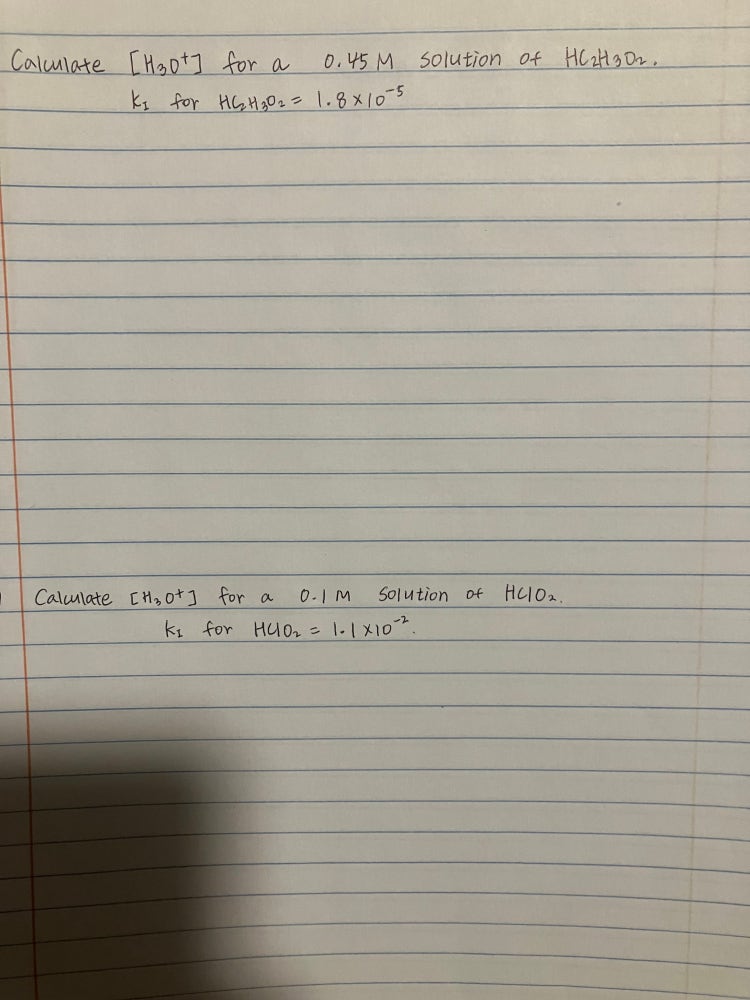 Calculate [H3O+] for a 0.45 M solution of HC2H3O2.
KI for HC2H3O2 = 1.8 × 10-5
Calculate [H3O+] for a 0.1 M solution of HClO2.
KI for HClO2 = 1.1 × 10-2.